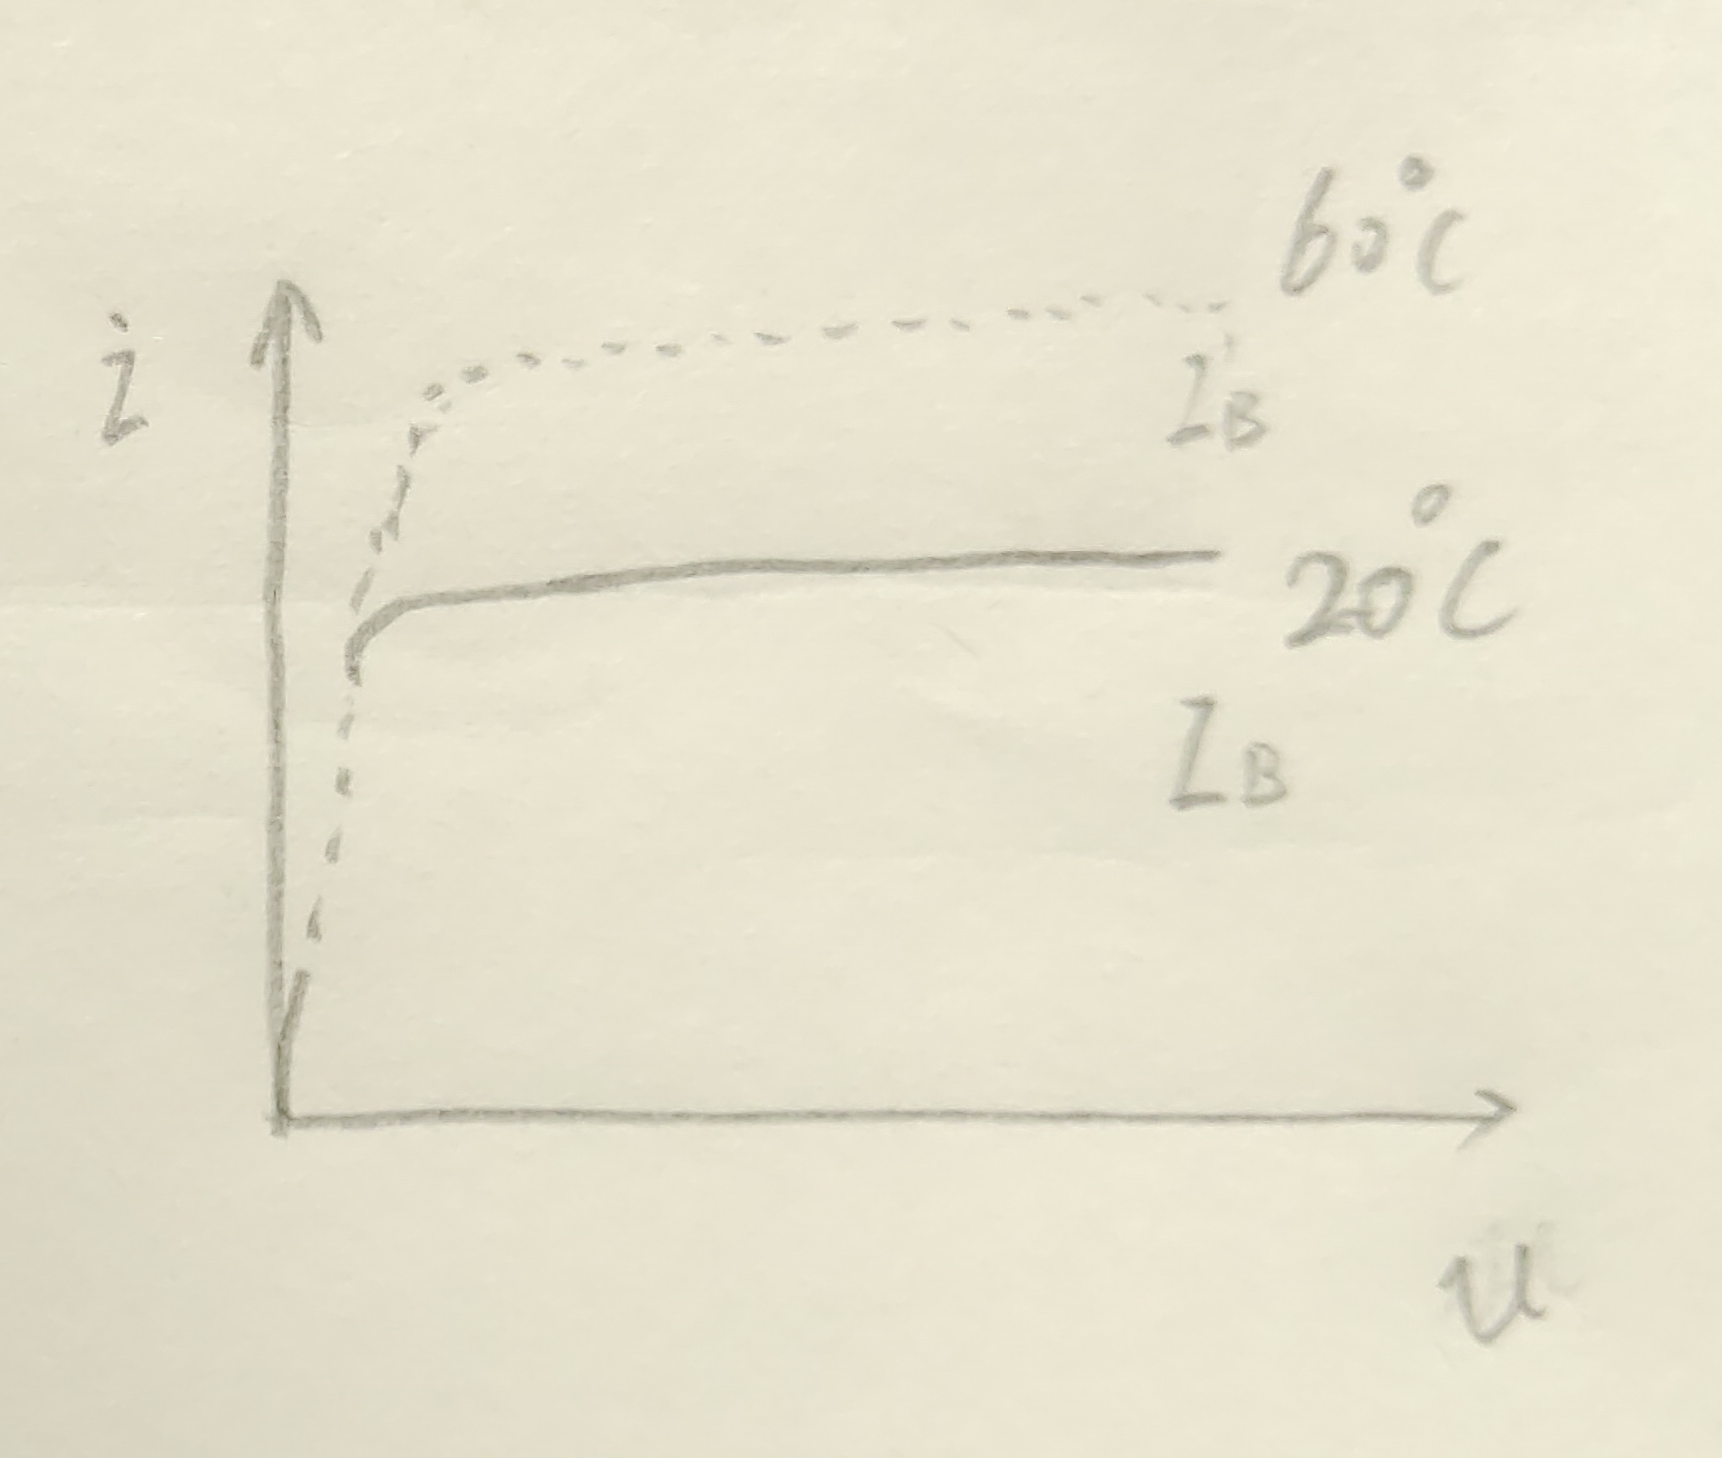 60°C
i
I'B
20°C
IB
u